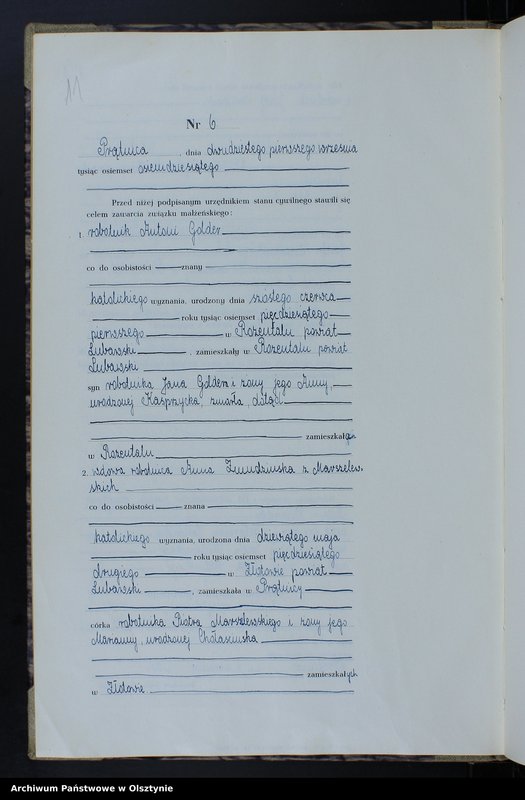 11
Nr 6
Prątnica, dnia dwudziestego pierwszego września
tysiąc osiemset osiemdziesiątego
Przed niżej podpisanym urzędnikiem stanu cywilnego stawili się
celem zawarcia związku małżeńskiego:
1. robotnik Antoni Golder
co do osobistości znany
katolickiego wyznania, urodzony dnia szóstego czerwca
roku tysiąc osiemset pięćdziesiątego
pierwszego w Rozentalu powiat
Lubawski, zamieszkały w Rozentalu powiat
Lubawski
syn robotnika Jana Golder i żony jego Anny,
urodzonej Kasprzycka, zmarła, dotąd
zamieszkał
w Rozentalu
2. wdowa robotnica Anna Żmudzinska z Marszelew-
skich
co do osobistości znana
katolickiego wyznania, urodzona dnia dziewiątego maja
roku tysiąc osiemset pięćdziesiątego
drugiego w Złotowie powiat
Lubawski, zamieszkała w Prątnicy
córka robotnika Piotra Marszelewskiego i żony jego
Marianny, urodzonej
zamieszkałych
w Złotowie
Archiwum Państwowe w Olsztynie